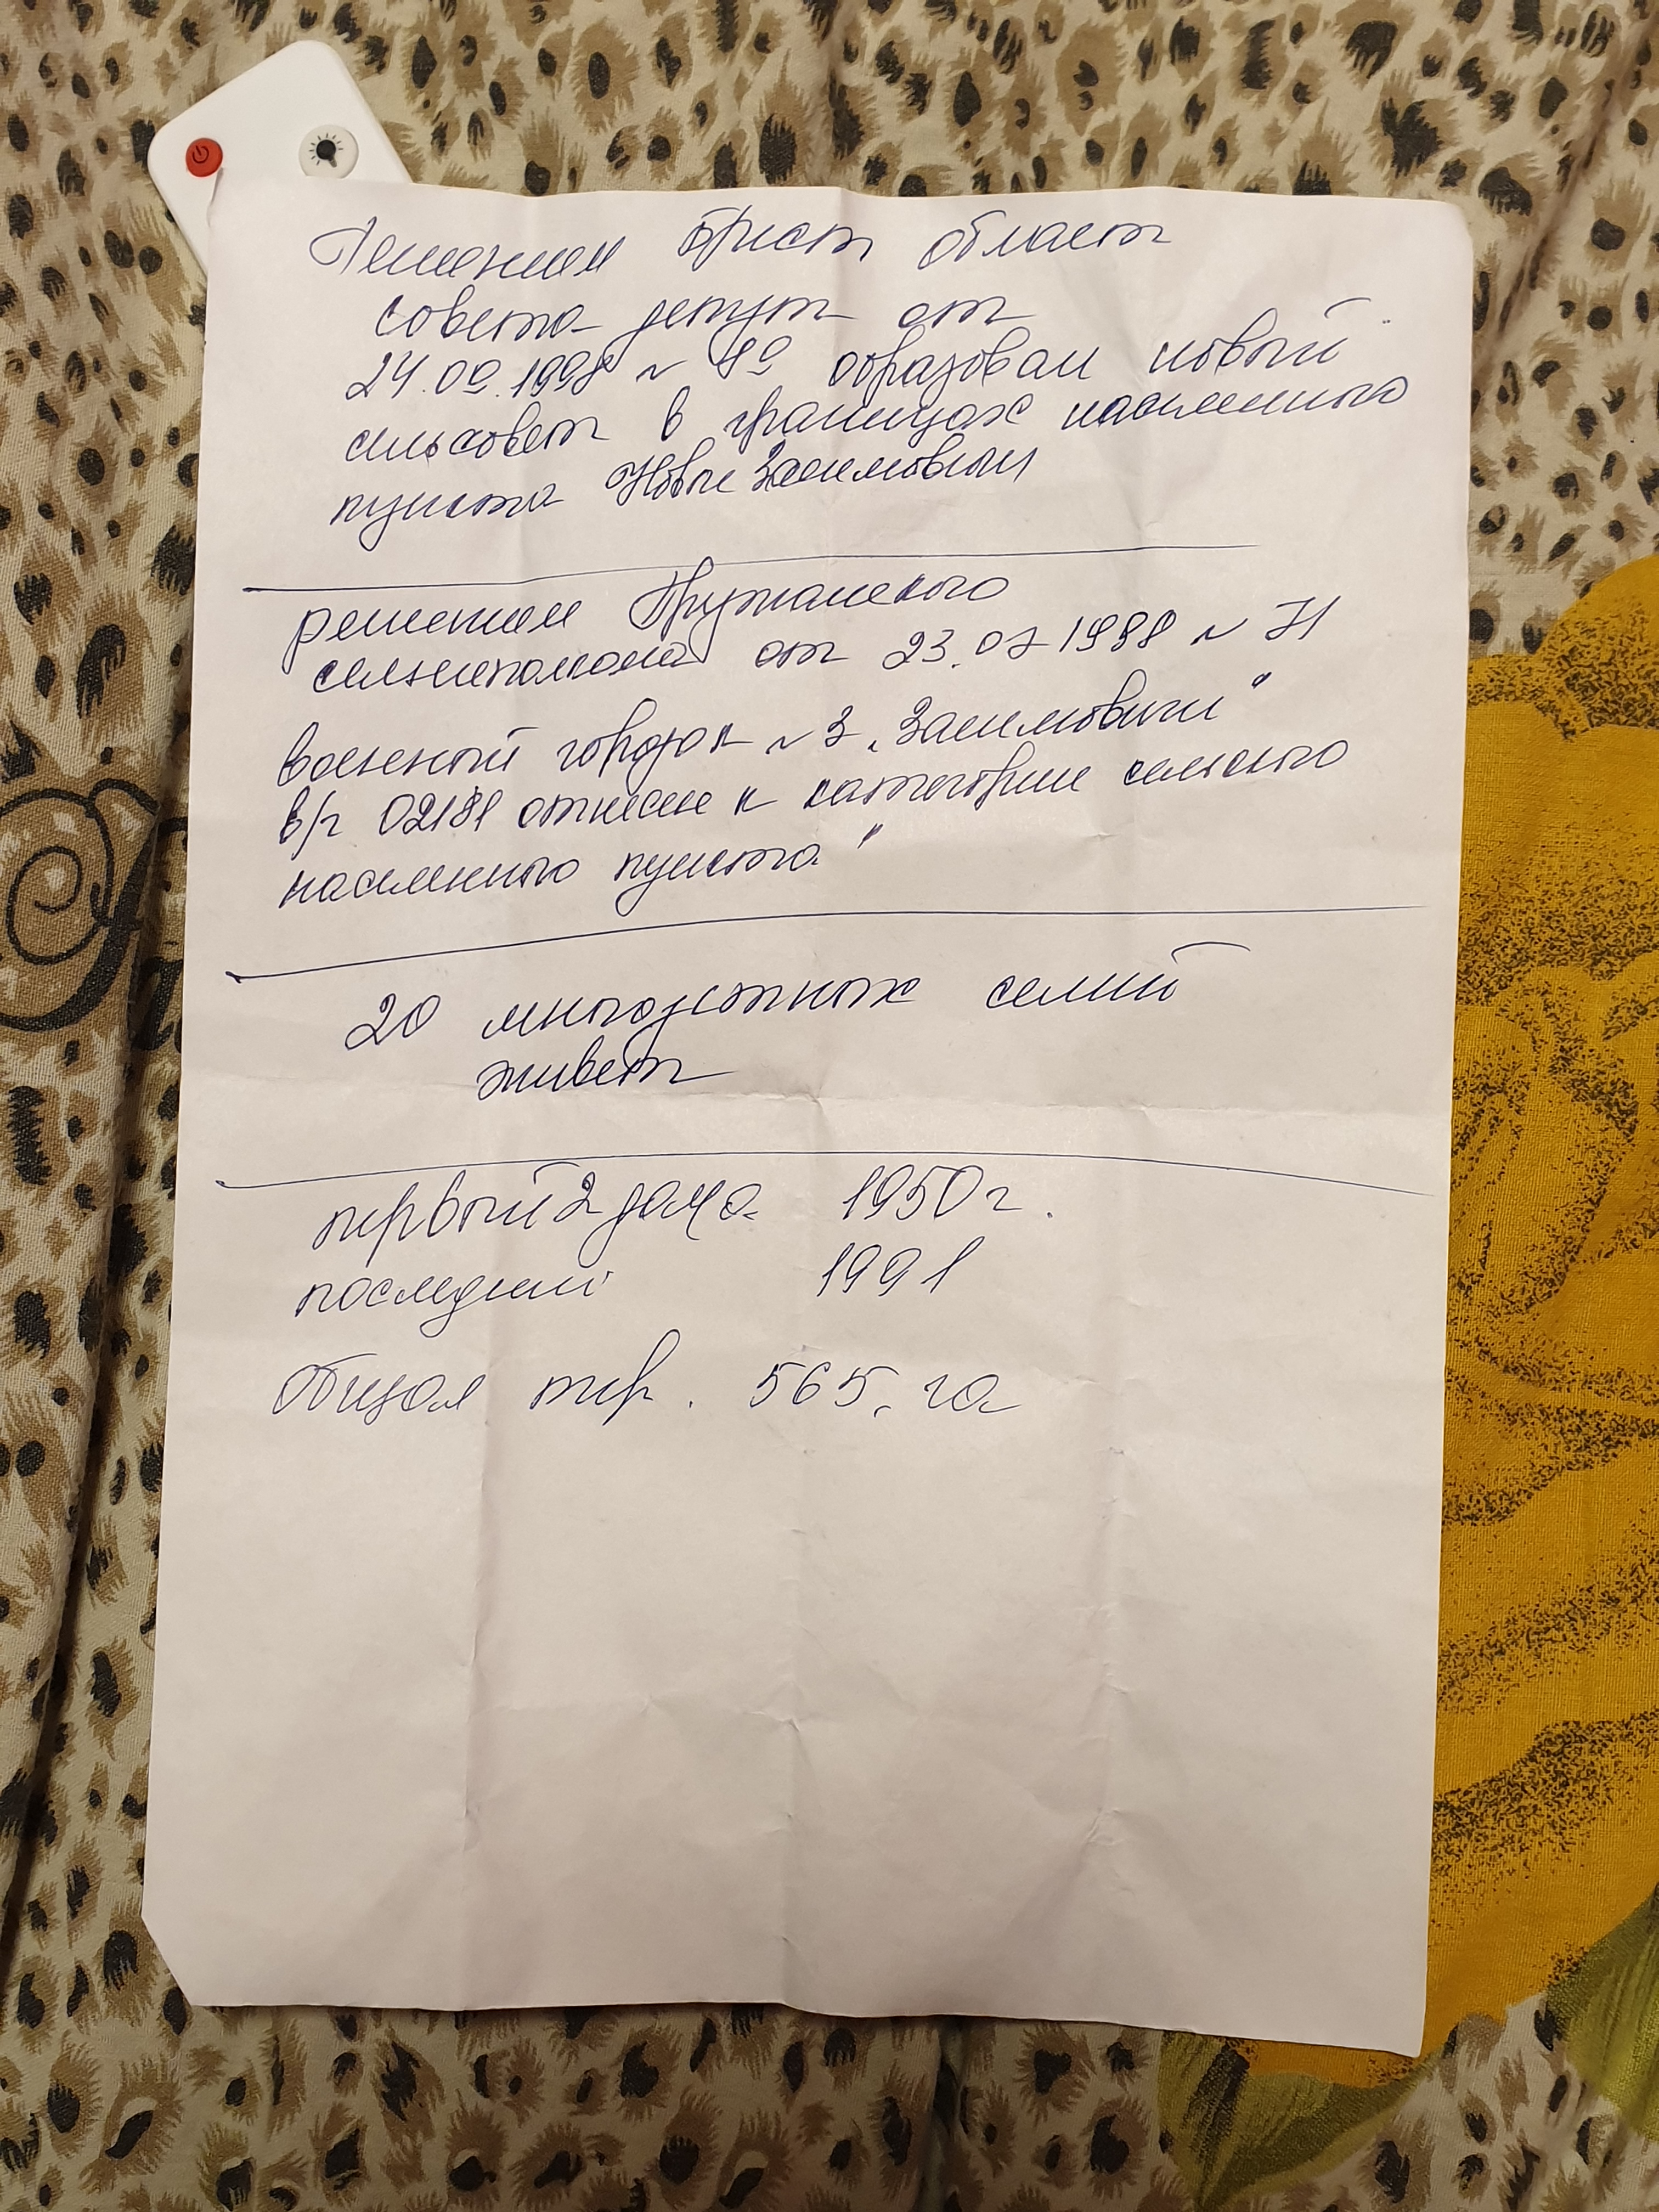 Решением Брест област
совета депут от
24.09.1998 № 89 образован новый
сельсовет в границах населенного
пункта Новые Засимовичи
решением Пружанского
сельисполкома от 23.07 1998 № 71
военный городок №3 „Засимовичи"
в/г отнесен к категории сельского
населенного пункта"
20 многодетных семей
живет
первый 2 дома 1950 г.
последний 1991
Общая тер. 565, га